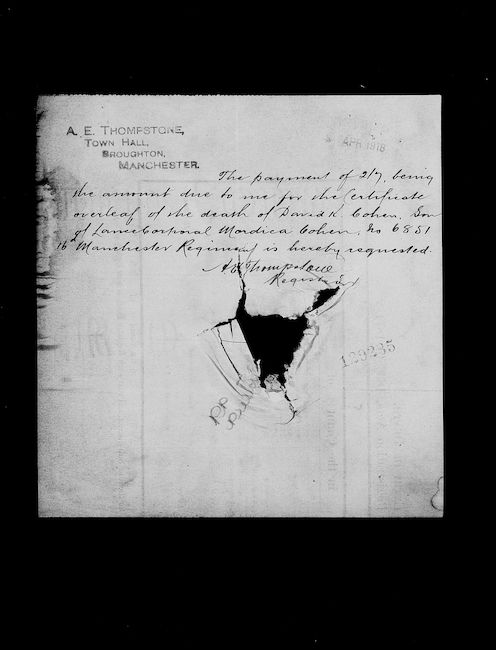 A. E. THOMPSTONE,
TOWN HALL,
BROUGHTON,
MANCHESTER.
APR 1918
The payment of 2/7, being
the amount due to me for the Certificate
overleaf of the death of David K. Cohen, Son
of Lance Corporal Mordica Cohen, No 6851
16th Manchester Regiment is hereby requested.
A E Thompstone
Registrar
129235